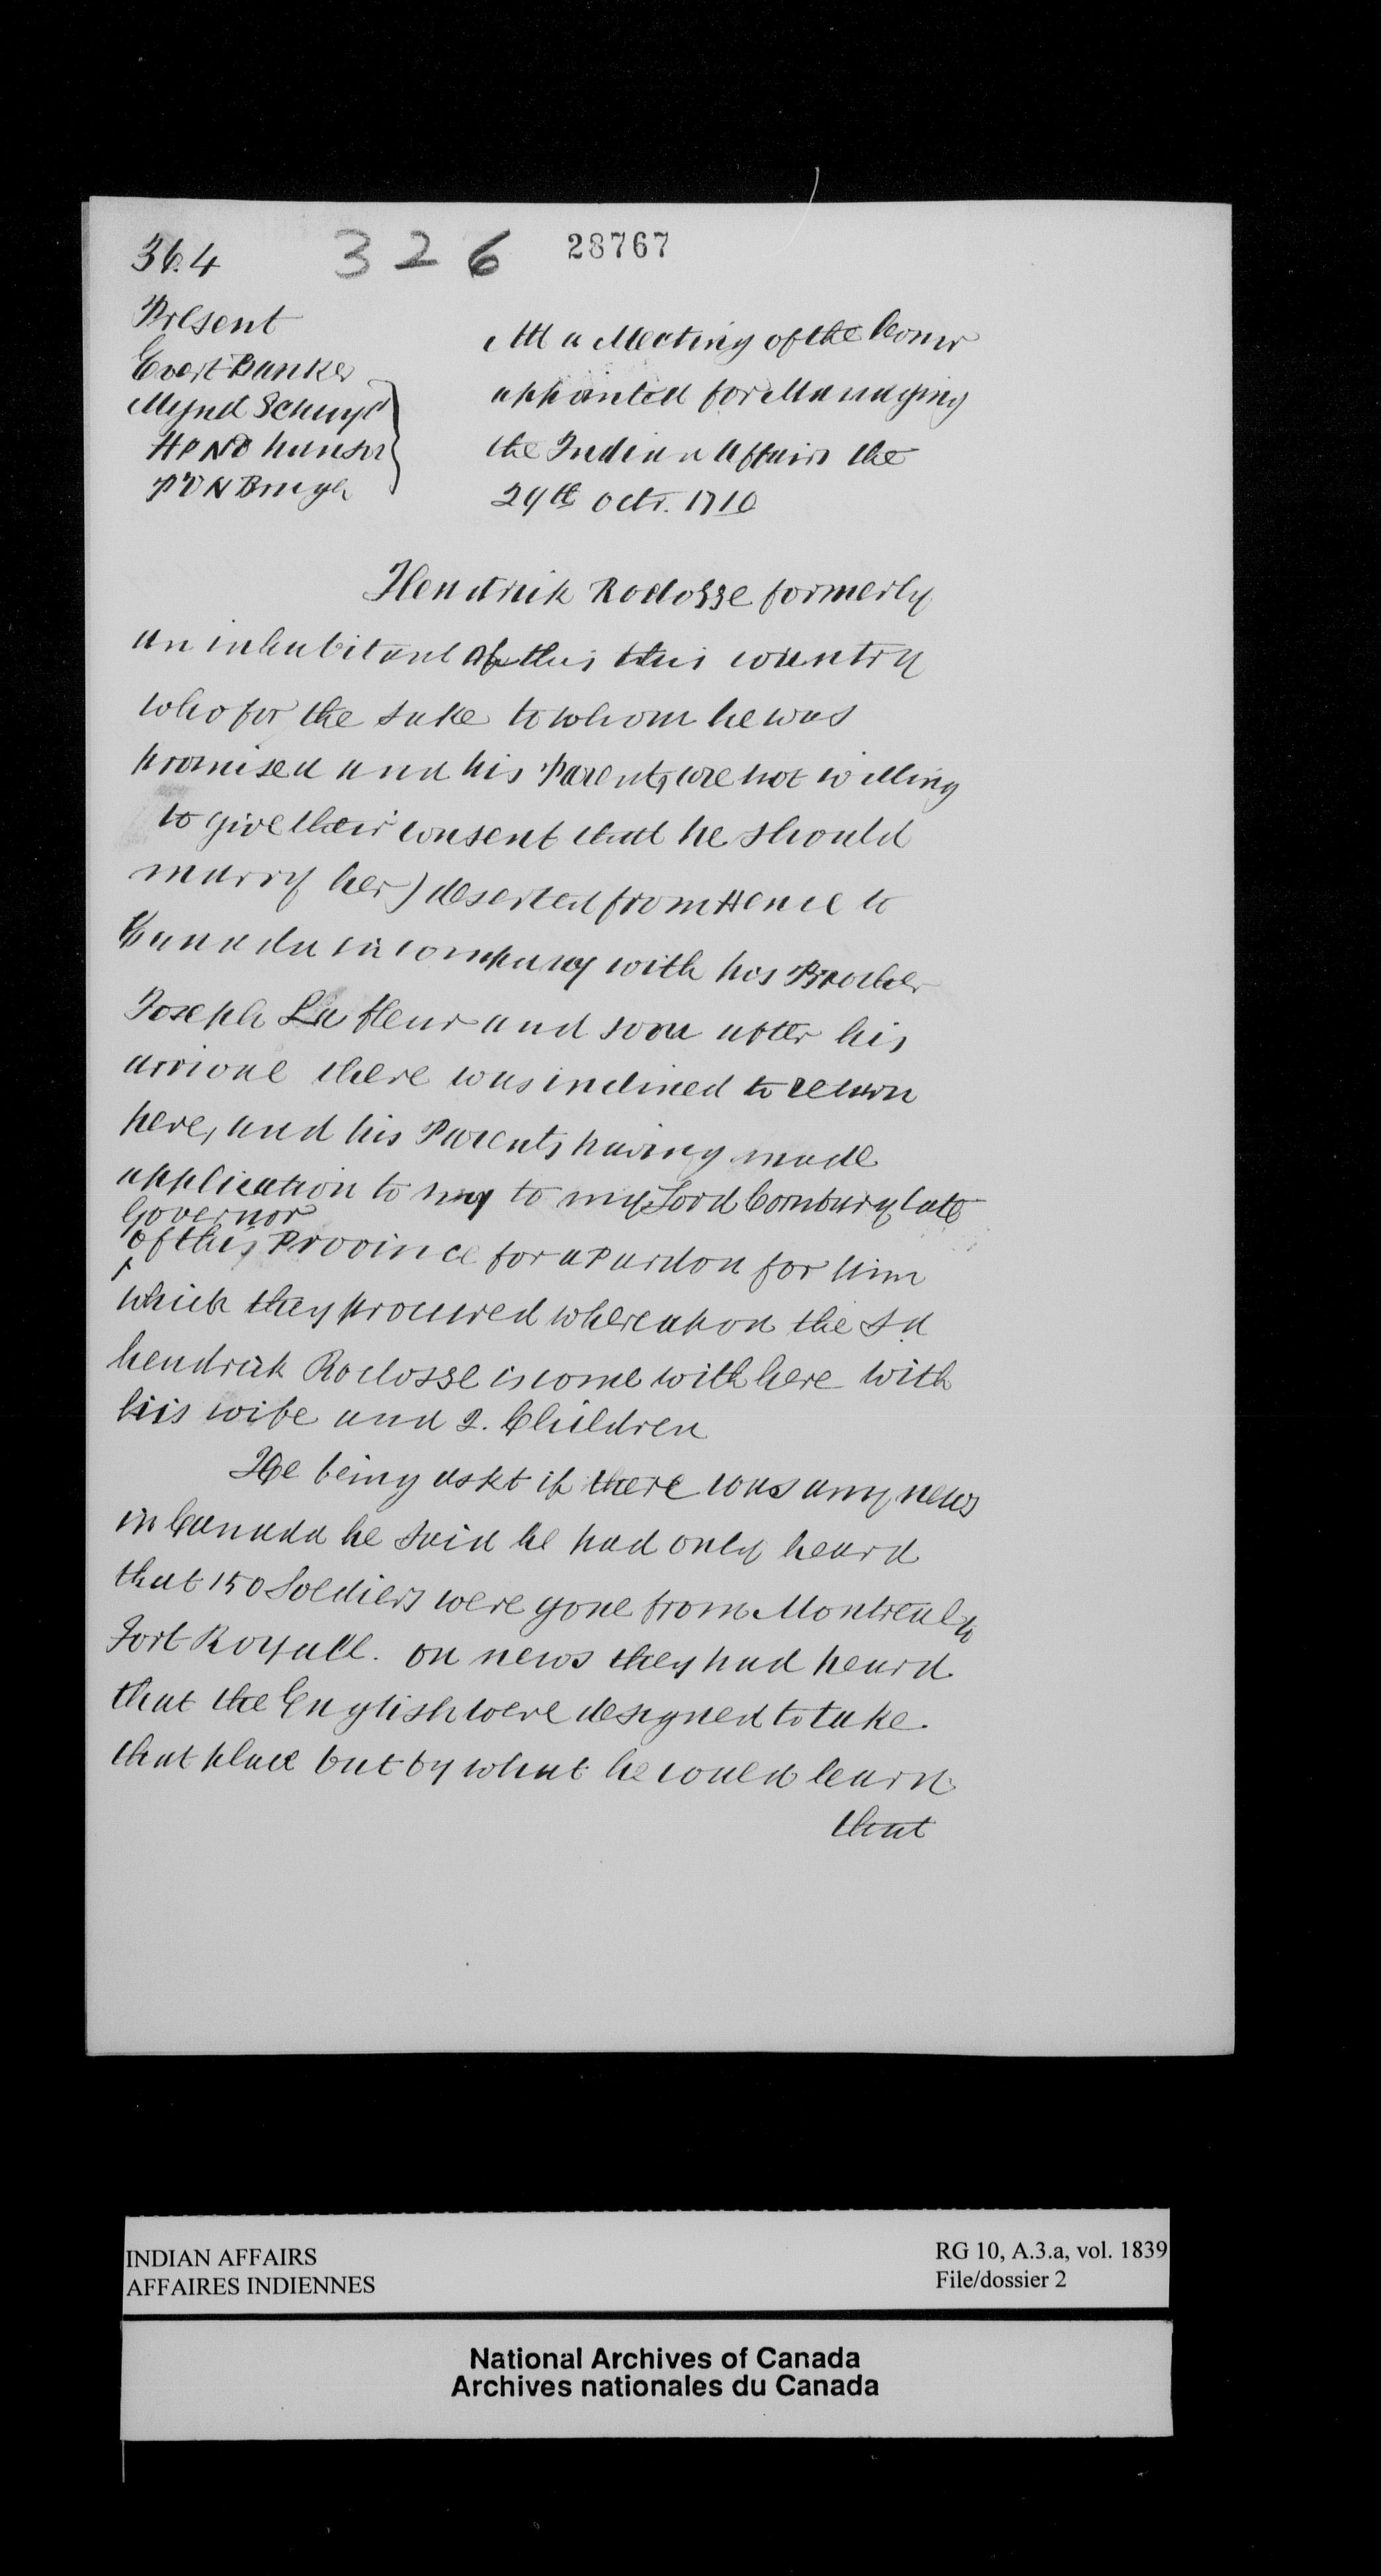 36.4
326
28767
Present
Evert Banker
Mynd Schuyl
HANS hansen
P V N Brugh
Att a Meeting of the Comrs
appointed for Managing
the Indian Affairs the
29th Octr. 1710
Hendrick Roclosse formerly
an inhabitant of this this country
who for the sake to whom he was
promised and his Parents were not willing
to give their consent that he should
marry her) deserted from Hence to
Canada in company with his Brother
Joseph La fleur and soon after his
arrivall there was inclined to return
here, and his Parents having made
application to my to my Lord Cornbury late
Governor
of this Province for a Pardon for him
which they procured whereupon the sd
hendrick Roclosse is come with here with
his wife and 2. Children
He being askt if there was any news
in Canada he said he had only heard
that 150 Soldiers were gone from Montreal to
Fort Royall. on news they had heard
that the English were designed to take
that place but by what he could learn
that
INDIAN AFFAIRS
AFFAIRES INDIENNES
RG 10, A.3.a, vol. 1839
File/dossier 2
National Archives of Canada
Archives nationales du Canada